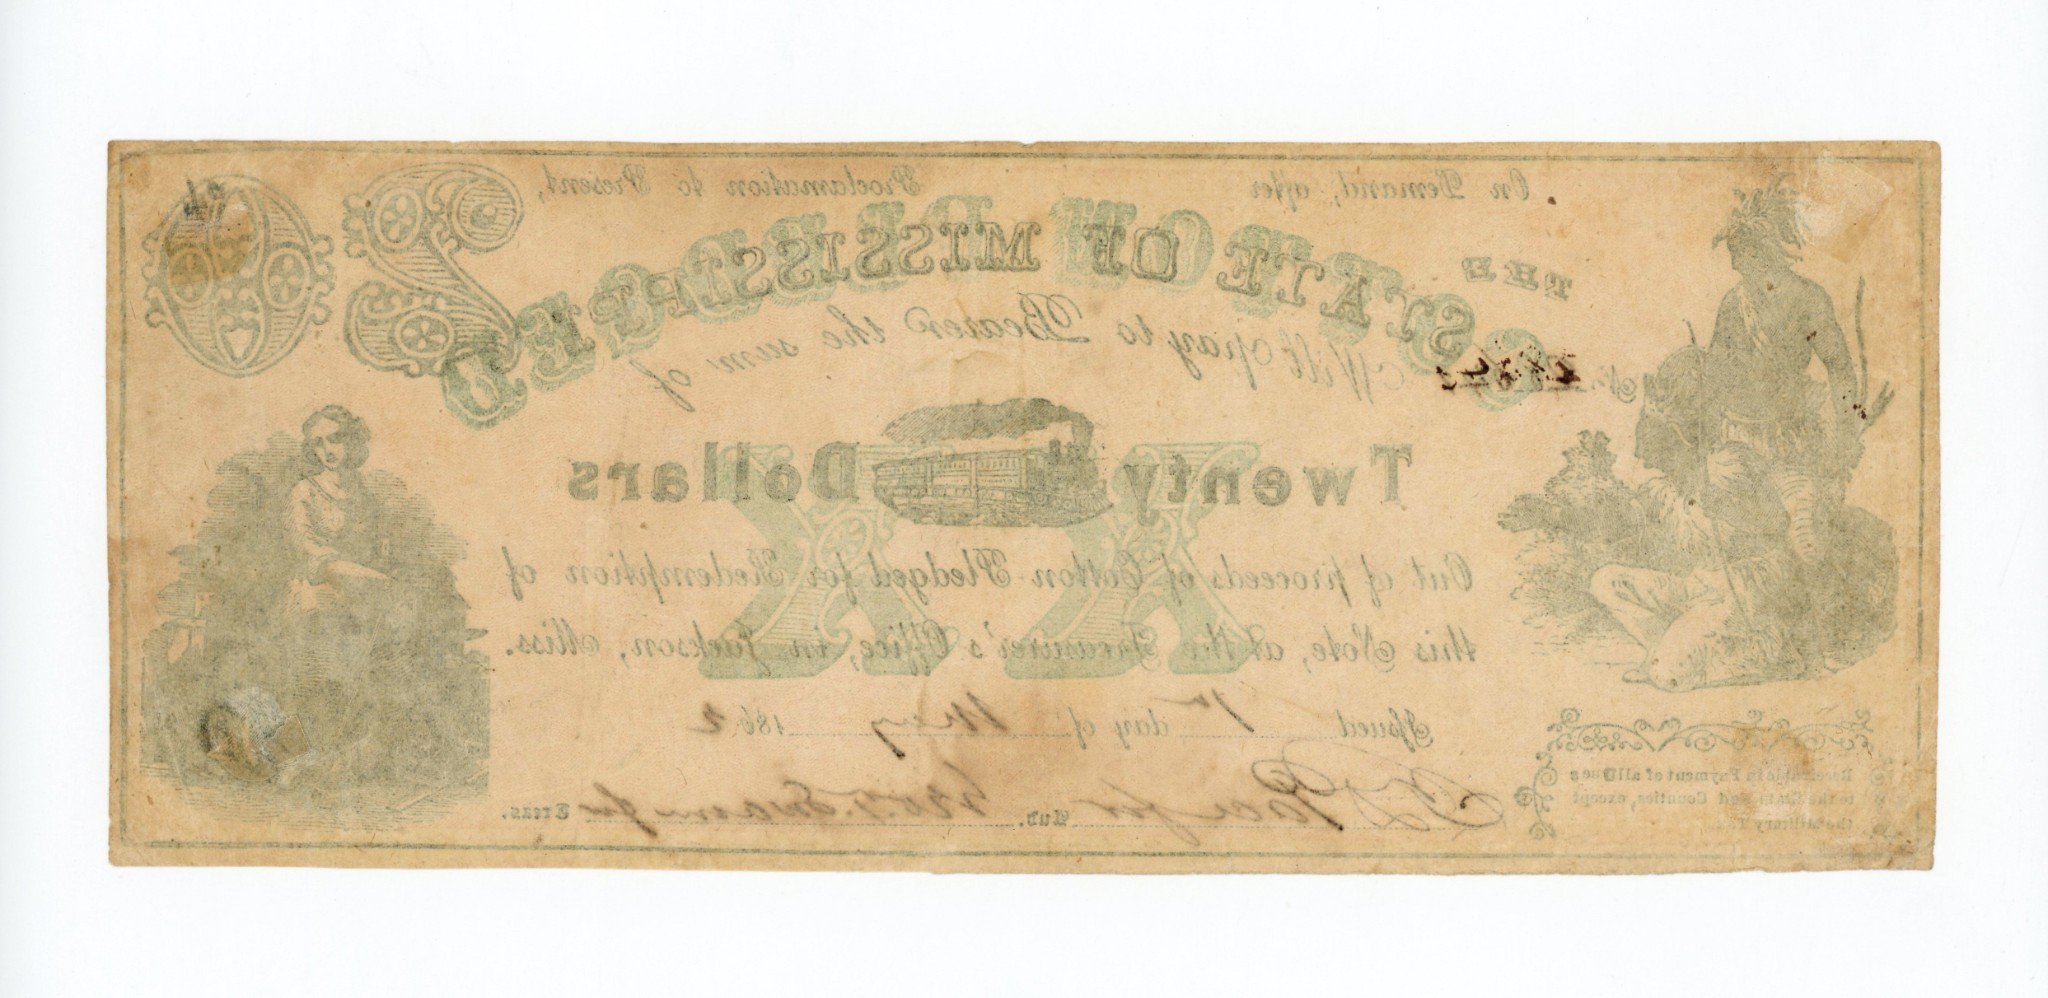 On Demand, after Proclamation to Present,
COTTON PLEDGED
THE STATE OF MISSISSIPPI
20
No.
Will pay to Bearer the sum of
Twenty Dollars
XX
Out of proceeds of Cotton Pledged for Redemption of
this Note, at the Treasurer's Office, in Jackson, Miss.
Issued 1st day of May 1862
Aud. Treas.
Receivable in Payment of all Dues
to the State and Counties, except
the Military Tax.